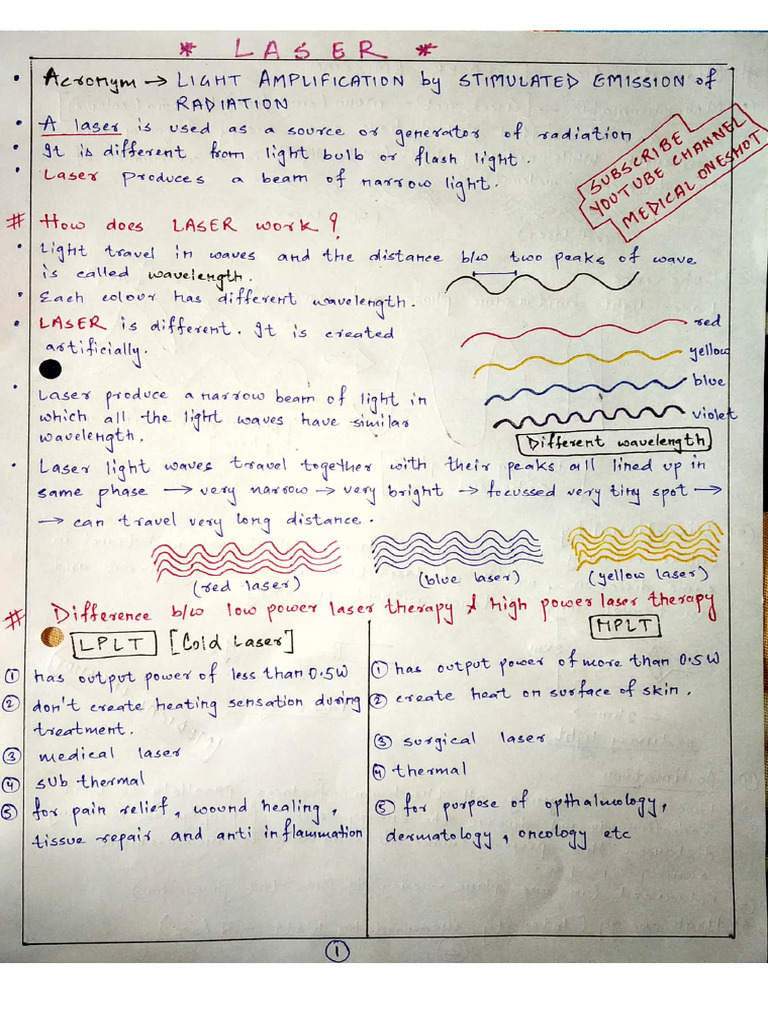 * LASER *
• Acronym → LIGHT AMPLIFICATION by STIMULATED EMISSION of
RADIATION
• A laser is used as a source or generator of radiation
• It is different from light bulb or flash light.
• Laser produces a beam of narrow light.
SUBSCRIBE
YOUTUBE CHANNEL
MEDICAL ONESHOT
# How does LASER work?
• Light travel in waves and the distance b/w two peaks of wave
is called wavelength.
• Each colour has different wavelength.
• LASER is different. It is created
artificially.
red
yellow
blue
violet
Different wavelength
• Laser produce a narrow beam of light in
which all the light waves have similar
wavelength.
• Laser light waves travel together with their peaks all lined up in
same phase → very narrow → very bright → focussed very tiny spot →
→ can travel very long distance.
(red laser)
(blue laser)
(yellow laser)
# Difference b/w low power laser therapy & high power laser therapy
LPLT [Cold Laser]
① has output power of less than 0.5W
② don't create heating sensation during
treatment.
③ medical laser
④ sub thermal
⑤ for pain relief, wound healing,
tissue repair and anti inflammation
HPLT
① has output power of more than 0.5W
② create heat on surface of skin.
③ surgical laser
④ thermal
⑤ for purpose of opthalmology,
dermatology, oncology etc
①